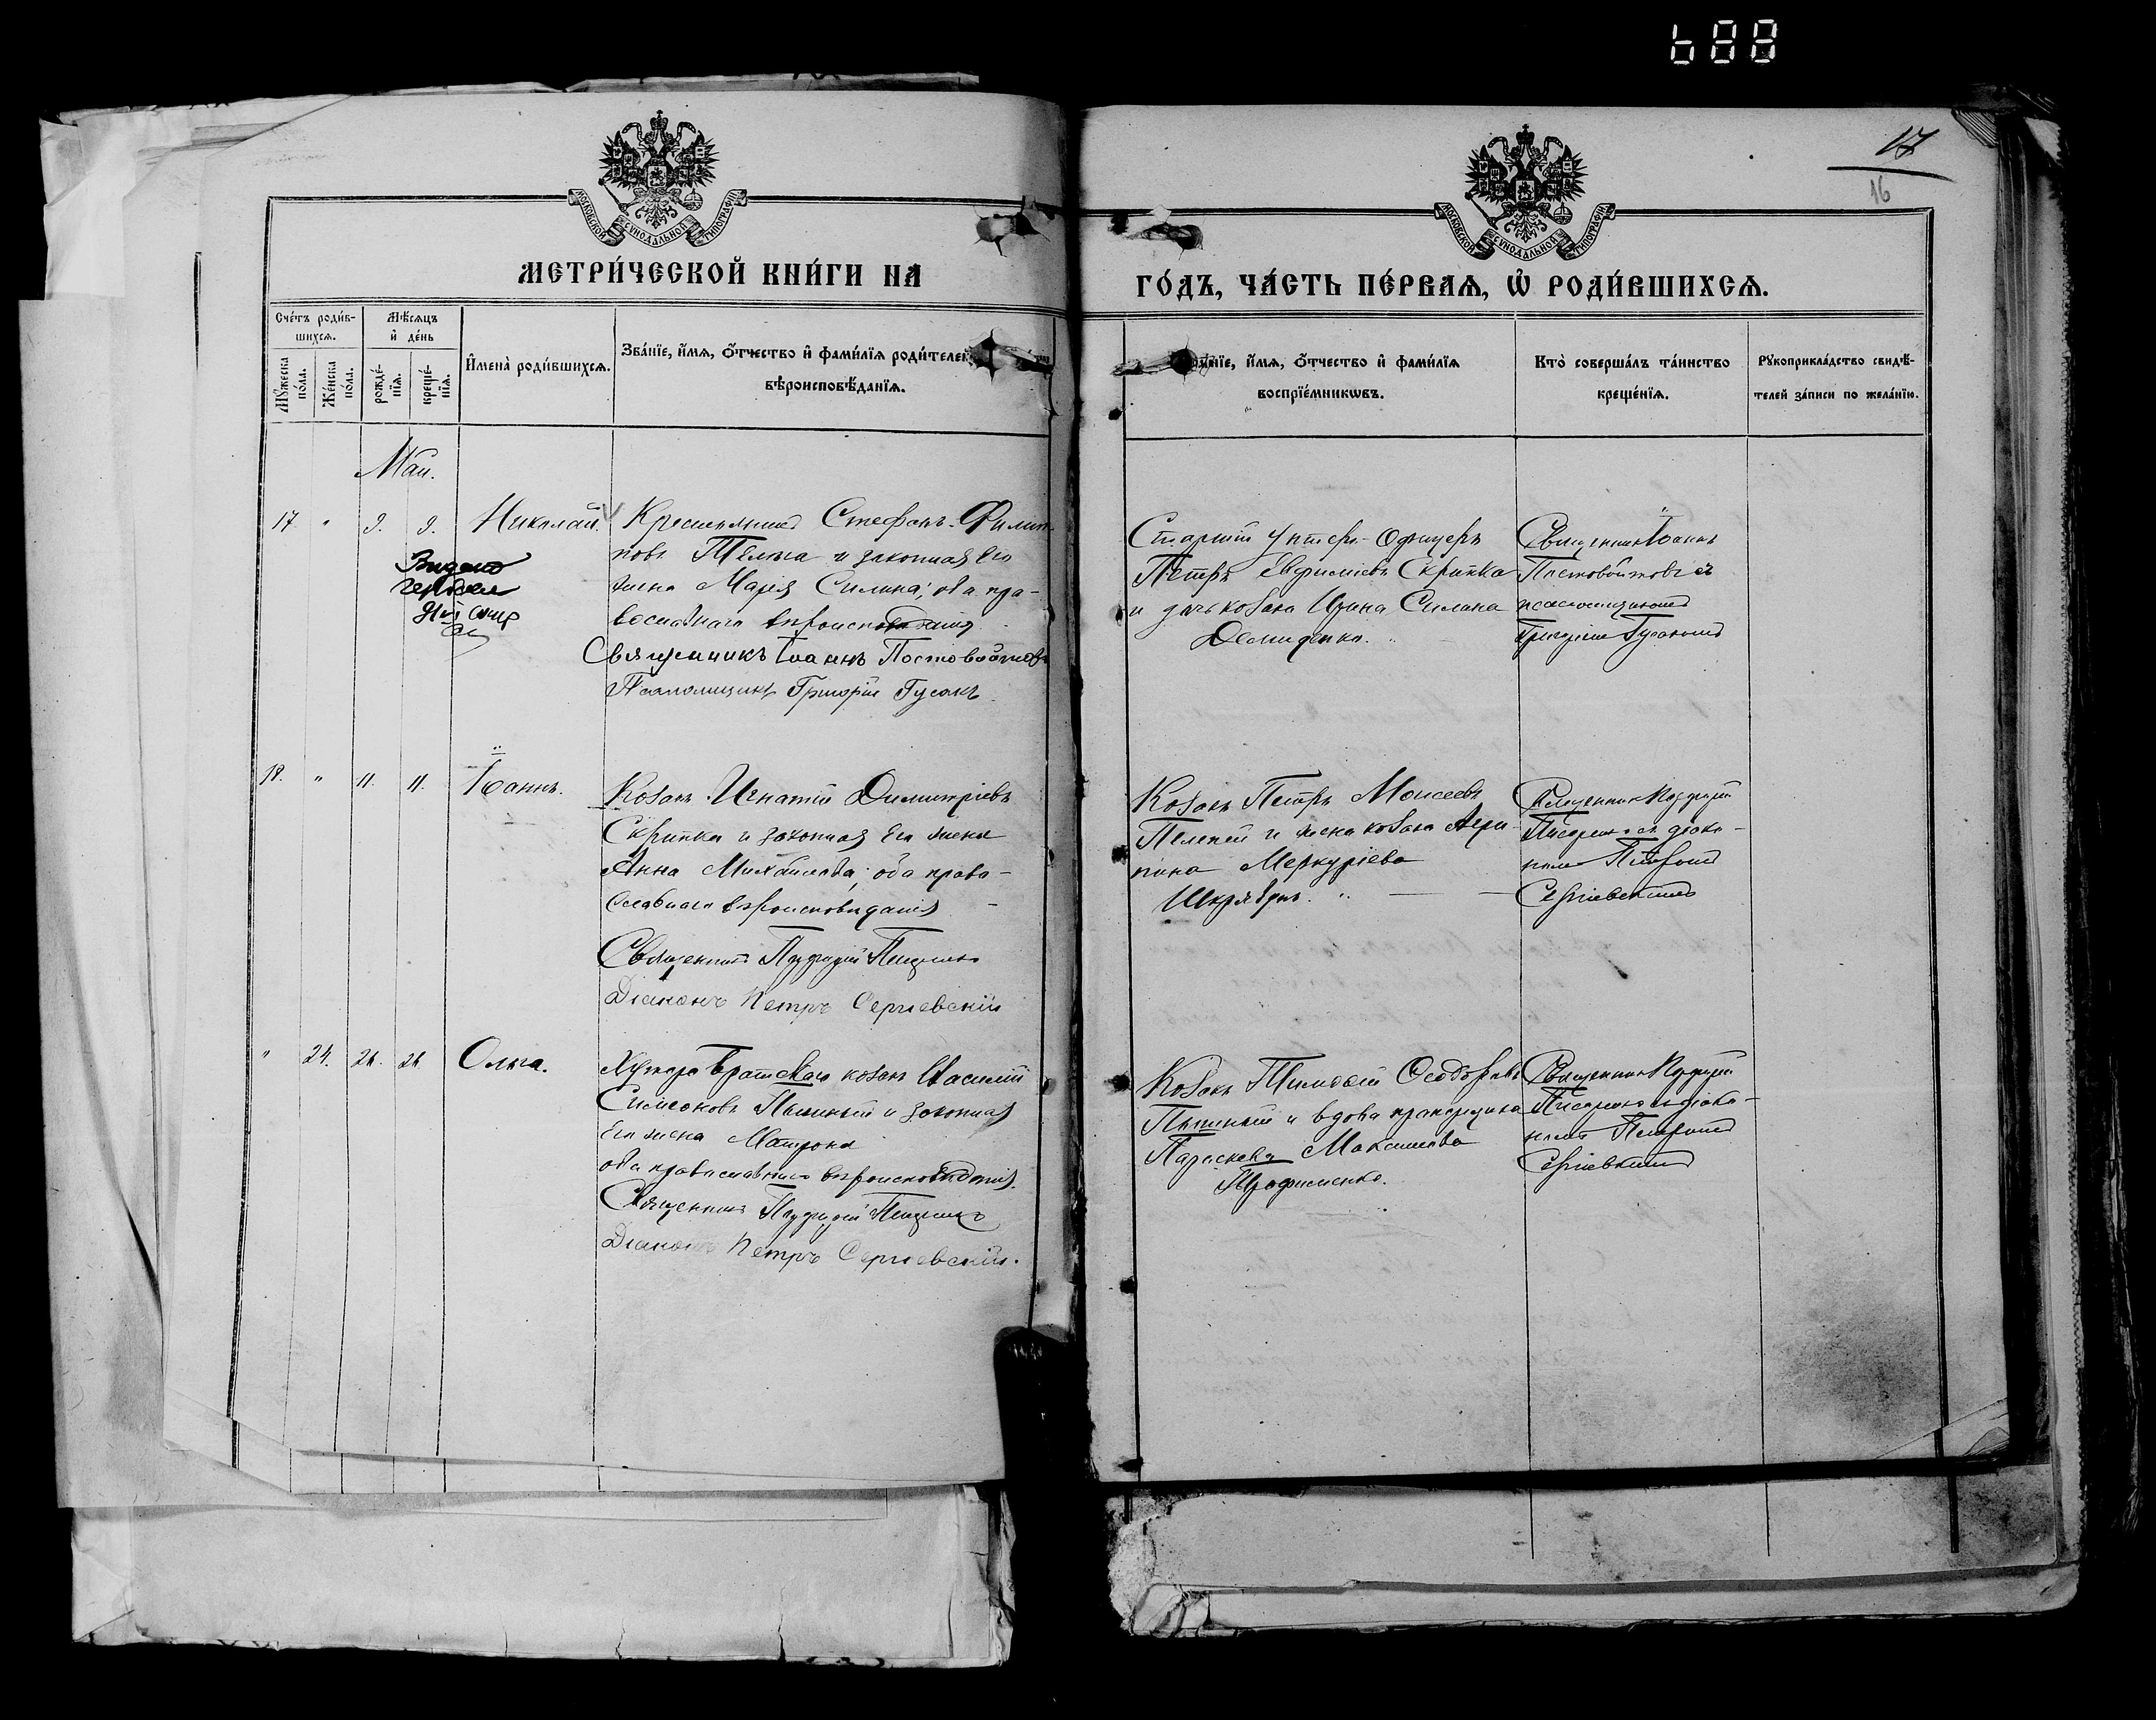 688
17
16
МОСКОВСКОЙ СУНОДАЛЬНОЙ ТИПОГРАФІИ
МОСКОВСКОЙ СУНОДАЛЬНОЙ ТИПОГРАФІИ
МЕТРИ́ЧЕСКОЙ КНИ́ГИ НА
ГО́ДЪ, ЧА́СТЬ ПЕ́РВАѦ, Ѡ҆ РОДИ́ВШИХСѦ.
Сче́тъ роди́в-
шихсѧ.
Мѣ́сѧцъ
и҆ де́нь
Мꙋ́жеска по́ла.
Же́нска по́ла.
рожде́-
нїѧ.
креще́-
нїѧ.
И҆мена̀ роди́вшихсѧ.
Зва́нїе, и҆́мѧ, ѻ҆́тчество и҆ фами́лїѧ роди́телей
вѣроисповѣ́данїѧ.
и҆́мѧ, ѻ҆́тчество и҆ фами́лїѧ
воспрїе́мникѡвъ.
Кто̀ соверша́лъ та́инство
креще́нїѧ.
Рꙋкоприкла́дство свидѣ́-
телей за́писи по жела́нїю.
Май.
17 " 9. 9. Николай.
Крестьянинъ Стефанъ Филип-
повъ и законная его
жена Марія Силина; оба пра-
вославнаго вѣроисповѣданія
Священникъ Іоаннъ Постовойтовъ
Псаломщикъ Григорій Гусакъ.
Старшій унтеръ-офицеръ
Петръ Евфиміевъ Скрипка
и дочь козака Ирина Силина
Демиденко.
Священникъ Іоаннъ
Постовойтовъ съ
псаломщикомъ
Григоріемъ Гусакомъ
18. " 11. 11. Іоаннъ.
Козакъ Игнатій Димитріевъ
Скрипка и законная его жена
Анна Михайлова; оба право-
славнаго вѣроисповѣданія
Священникъ
Діаконъ Петръ Сергіевскій
Козакъ Петръ Моисеевъ
и жена козака Агри-
пина Меркуріева
Священникъ
діако-
номъ Петромъ
Сергіевскимъ
" 24. 24. 24. Ольга.
Хутора козакъ Василій
Симеоновъ и законная
его жена Матрона
оба православнаго вѣроисповѣданія.
Священникъ
Діаконъ Петръ Сергіевскій.
Козакъ Тимофей Ѳеодоровъ
и вдова прапорщика
Параскева Максимова
Трофименко.
Священникъ
діако-
номъ Петромъ
Сергіевскимъ